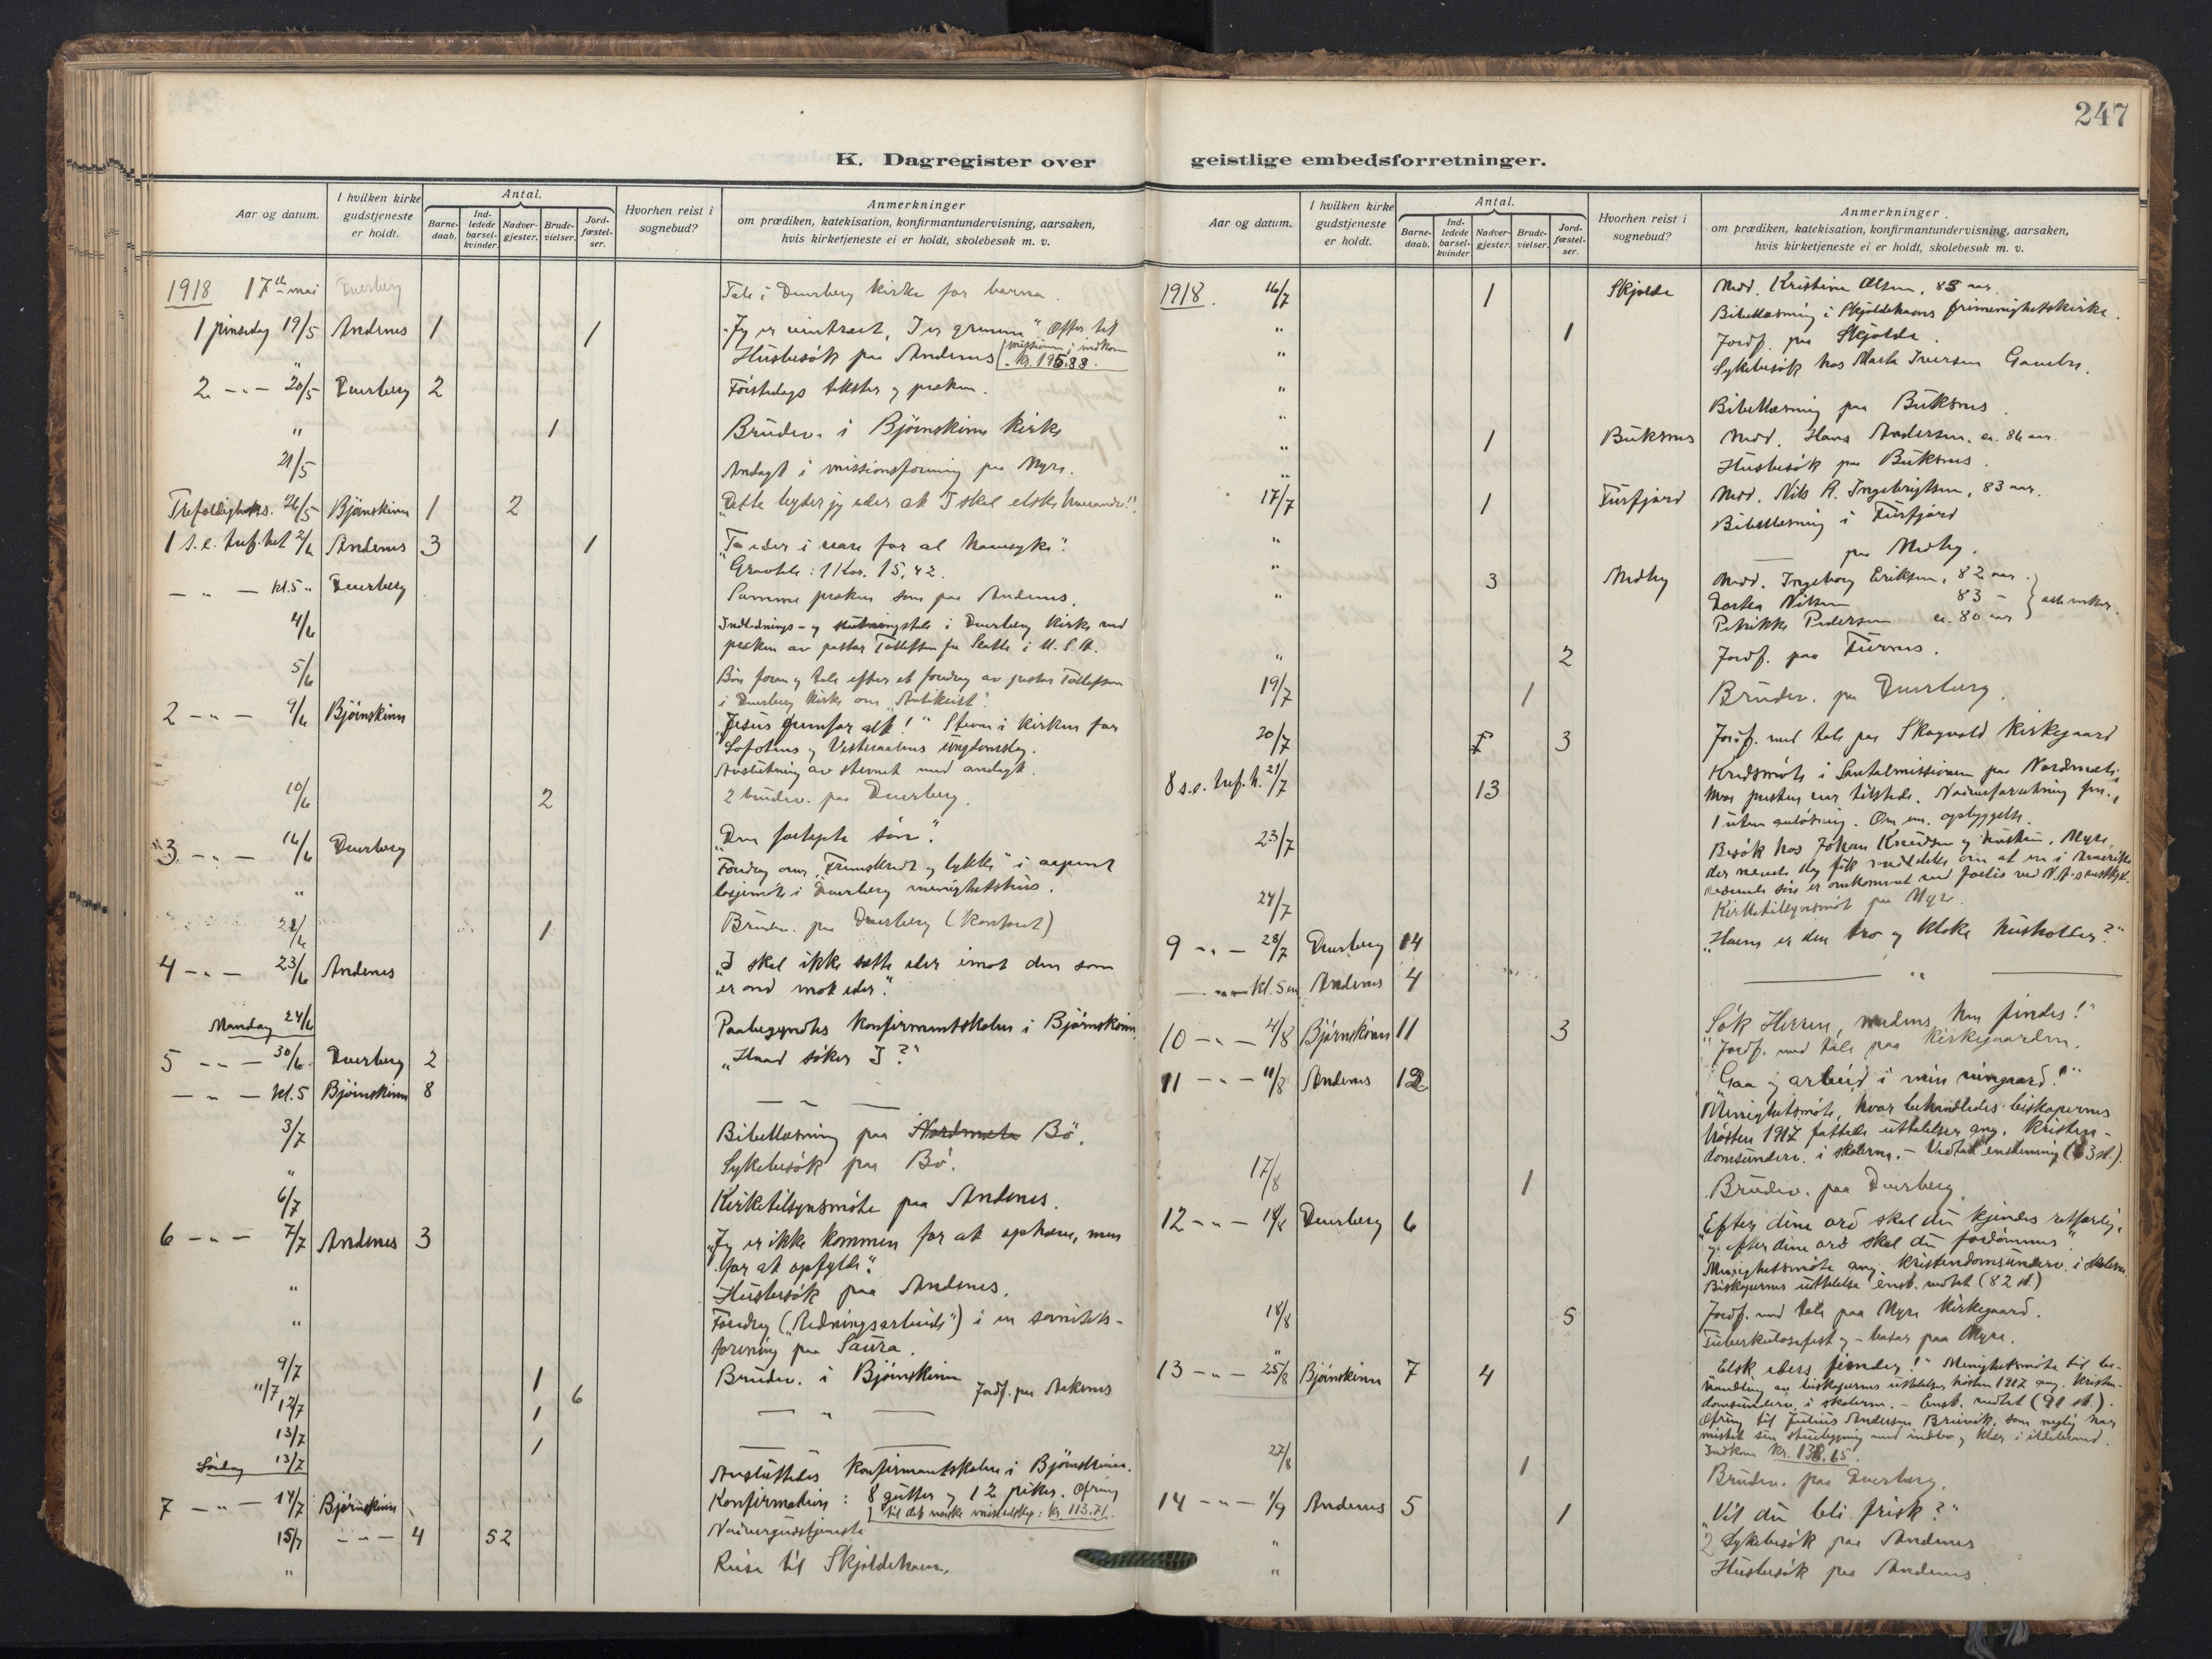 247
K. Dagregister over
Aar og datum.
I hvilken kirke gudstjeneste er holdt.
Antal.
Barne-daab.
Ind-ledede barsel-kvinder.
Nadver-gjester.
Brude-vielser.
Jord-fæstel-ser.
Hvorhen reist i sognebud?
Anmerkninger
om prædiken, katekisation, konfirmantundervisning, aarsaken,
hvis kirketjeneste ei er holdt, skolebesøk m. v.
1918 17de mai Dverberg Tale i Dverberg kirke for barna.
1 pinsedag 19/5 Andenes 1 1 "Jeg er vintræet, I er grenene" Offer til
Husbesøk paa Andenes missionen; indkom kr. 195.88.
2 -"- 20/5 Dverberg 2 Förstedags tekster og præken.
" 1 Brudev. i Bjørnskinn kirke
21/5 Andagt i missionsforening paa Myre.
Trefoldighets. 26/5 Bjørnskinn 1 2 "Dette byder jeg eder at I skal elske hverandre!"
1 s. e. tref.het 2/6 Andenes 3 1 "Ta eder i vare for al havesyke".
Gravtale: 1 Kor. 15, 42.
-"- kl. 5 " Dverberg Samme præken som paa Andenes.
4/6 Indlednings- og slutningstale i Dverberg kirke ved
præken av pastor Tollefsen fra Seattle i U. S. A.
5/6 Bön foran og tale efter et foredrag av pastor Tollefsen
i Dverberg kirke om "Antikrist".
2 -"- 9/6 Bjørnskinn "Jesus fremfor alt!" Stevne i kirken for
Lofotens og Vesteraalens ungdomslag.
Avslutning av stevnet med andagt.
10/6 2 2 brudev. paa Dverberg.
3 -"- 16/6 Dverberg "Den fortapte sön".
" Foredrag om "Fremskridt og lykke" i aapent
losjemöte i Dverberg menighetshus.
22/6 1 Brudev. paa Dverberg (kontoret)
4 -"- 23/6 Andenes "I skal ikke sætte eder imot den som
er ond mot eder".
Mandag 24/6 Paabegyndtes konfirmantskolen i Bjørnskinn
5 -"- 30/6 Dverberg 2 "Hvad söker I?"
-"- kl. 5 Bjørnskinn 8 -"-
3/7 Bibellæsning paa Nordmela Bö.
" Sykebesök paa Bö.
6/7 Kirketilsynsmöte paa Andenes.
6 -"- 7/7 Andenes 3 "Jeg er ikke kommen for at ophæve, men
for at opfylde".
" Husbesök paa Andenes.
" Foredrag ("Redningsarbeide") i en sanitets-
forening paa Saura.
9/7 1 Brudev. i Bjørnskinn
11/7 6 Jordf. paa Aaknes
12/7 1 -"-
13/7 1 -"-
Lördag 13/7 Avsluttedes konfirmantskolen i Bjørnskinn.
7 -"- 14/7 Bjørnskinn Konfirmation: 8 gutter og 12 piker. Ofring
til det norske misselskap: kr. 113.71.
15/7 -"- 4 52 Nadvergudstjeneste
" Reise til Skjoldehavn.
geistlige embedsforretninger.
Aar og datum.
I hvilken kirke gudstjeneste er holdt.
Antal.
Barne-daab.
Ind-ledede barsel-kvinder
Nadver-gjester.
Brude-vielser.
Jord-fæstel-ser.
Hvorhen reist i sognebud?
Anmerkninger.
om prædiken, katekisation, konfirmantundervisning, aarsaken,
hvis kirketjeneste ei er holdt, skolebesøk m. v.
1918. 16/7 1 Skjolde Nedd. Kristine Olsen, 83 aar.
" Bibellæsning i Skjoldehavns frimenighetskirke.
1 Jordf. paa Skjolde.
" Sykebesök hos Marta Iversen
" Bibellæsning paa Buksnes.
" 1 Buksnes Nedd. Hans Andersen. ca. 86 aar.
" Husbesök paa Buksnes.
17/7 1 Fiirfjord Nedd. Nils R. Ingebrigtsen, 83 aar.
Bibellæsning i Fiirfjord
" — paa Nedby.
" 3 Nedby Nedd. Ingeborg Eriksen, 82 aar.
" Dortea Nilsen 83 -
Petrikke Pedersen ca. 80 aar
" 2 Jordf. paa
19/7 1 Brudev. paa Dverberg.
20/7 3 Jordf. med tale paa Skogvold kirkegaard
8 s. e. tref. h. 21/7 13 Kredsmöte i Santalmissionen paa Nordmela,
hvor presten var tilstede. Nadverforretning
1 uten avlösning. Om em. opbyggelse.
23/7 Besök hos Johan Knudsen og hustru, Myre,
der nævnte dag fik meddelelse om at en i Amerika
værende sön er omkommet ved forlis
24/7 Kirketilsynsmöt paa Myre.
9 -"- 28/7 Dverberg 14 "Hvem er den tro og kloke husholder?"
-"- kl. 5 em Andenes 4 -"-
10 -"- 4/8 Bjørnskinn 11 3 "Sök Herren, medens han findes!"
Jordf. med tale paa kirkegaarden.
11 -"- 11/8 Andenes 12 "Gaa og arbeid i min vingaard!"
Menighetsmöte, hvor behandledes biskopernes
hösten 1917 fattede uttalelser ang. kristen-
domsunderv. i skolerne. - Vedtat enstemmig (63 st.).
17/8 1 Brudev. paa Dverberg.
12 -"- 18/8 Dverberg 6 "Efter dine ord skal du kjendes retfærdig,
og efter dine ord skal du fordömmes".
Menighetsmöte ang. kristendomsunderv. i skolerne.
Biskopernes uttalelse enst. vedtat (82 st.)
18/8 5 Jordf. med tale paa Myre kirkegaard.
" Tuberkulosefest og -basar paa Myre.
13 -"- 25/8 Bjørnskinn 7 4 "Elsk eders fiender!" Menighetsmöte til be-
handling av biskopernes uttalelser hösten 1917 ang. kristen-
domsunderv. i skolerne. - Enst. vedtat (91 st.).
Ofring til Julius Andersen Breivik, som nylig har
mistet sin stuebygning med indbo og klær i ildebrand.
Indkom kr. 138.65.
27/8 1 Brudev. paa Dverberg.
14 -"- 1/9 Andenes 5 1 "Vil du bli frisk?"
" 2 Sykebesök paa Andenes
" Husbesök paa Andenes